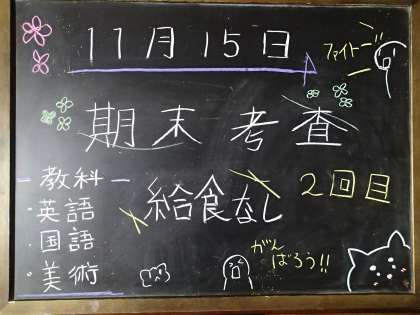 11月15日
ファイトー
期末考査
2回目
給食なし
教科
・英語
・国語
・美術
がんばろう!!